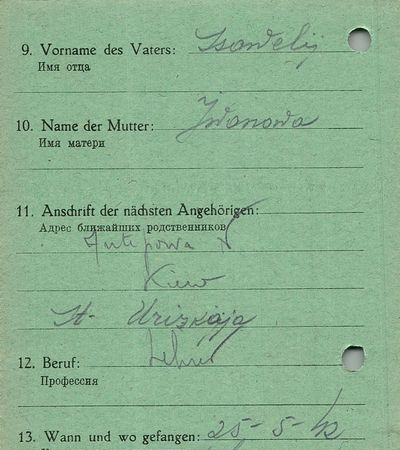 9. Vorname des Vaters: Isawelij
Имя отца
10. Name der Mutter: Iwanowa
Имя матери
11. Anschrift der nächsten Angehörigen:
Адрес ближайших родственников
Antipowa
Kiew
St- Urizkaja
12. Beruf: Lehrer
Профессия
13. Wann und wo gefangen: 25-5-42